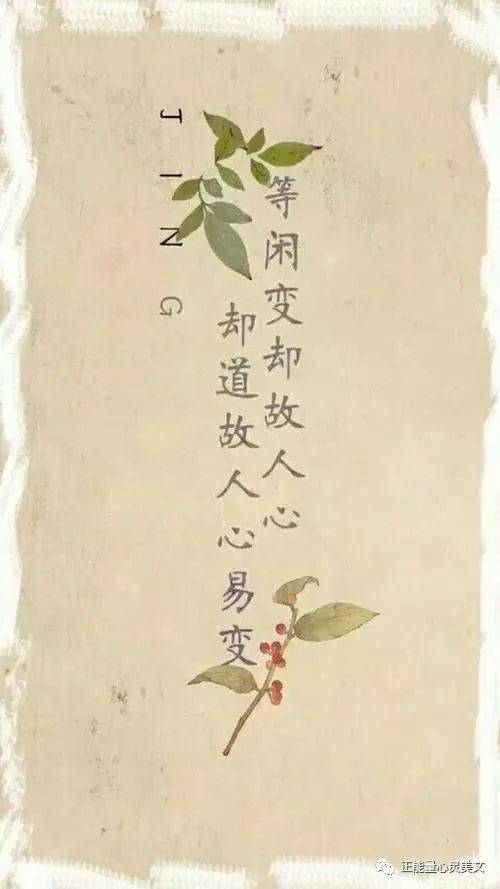 等闲变却故人心
却道故人心易变
JING
正能量心灵美文